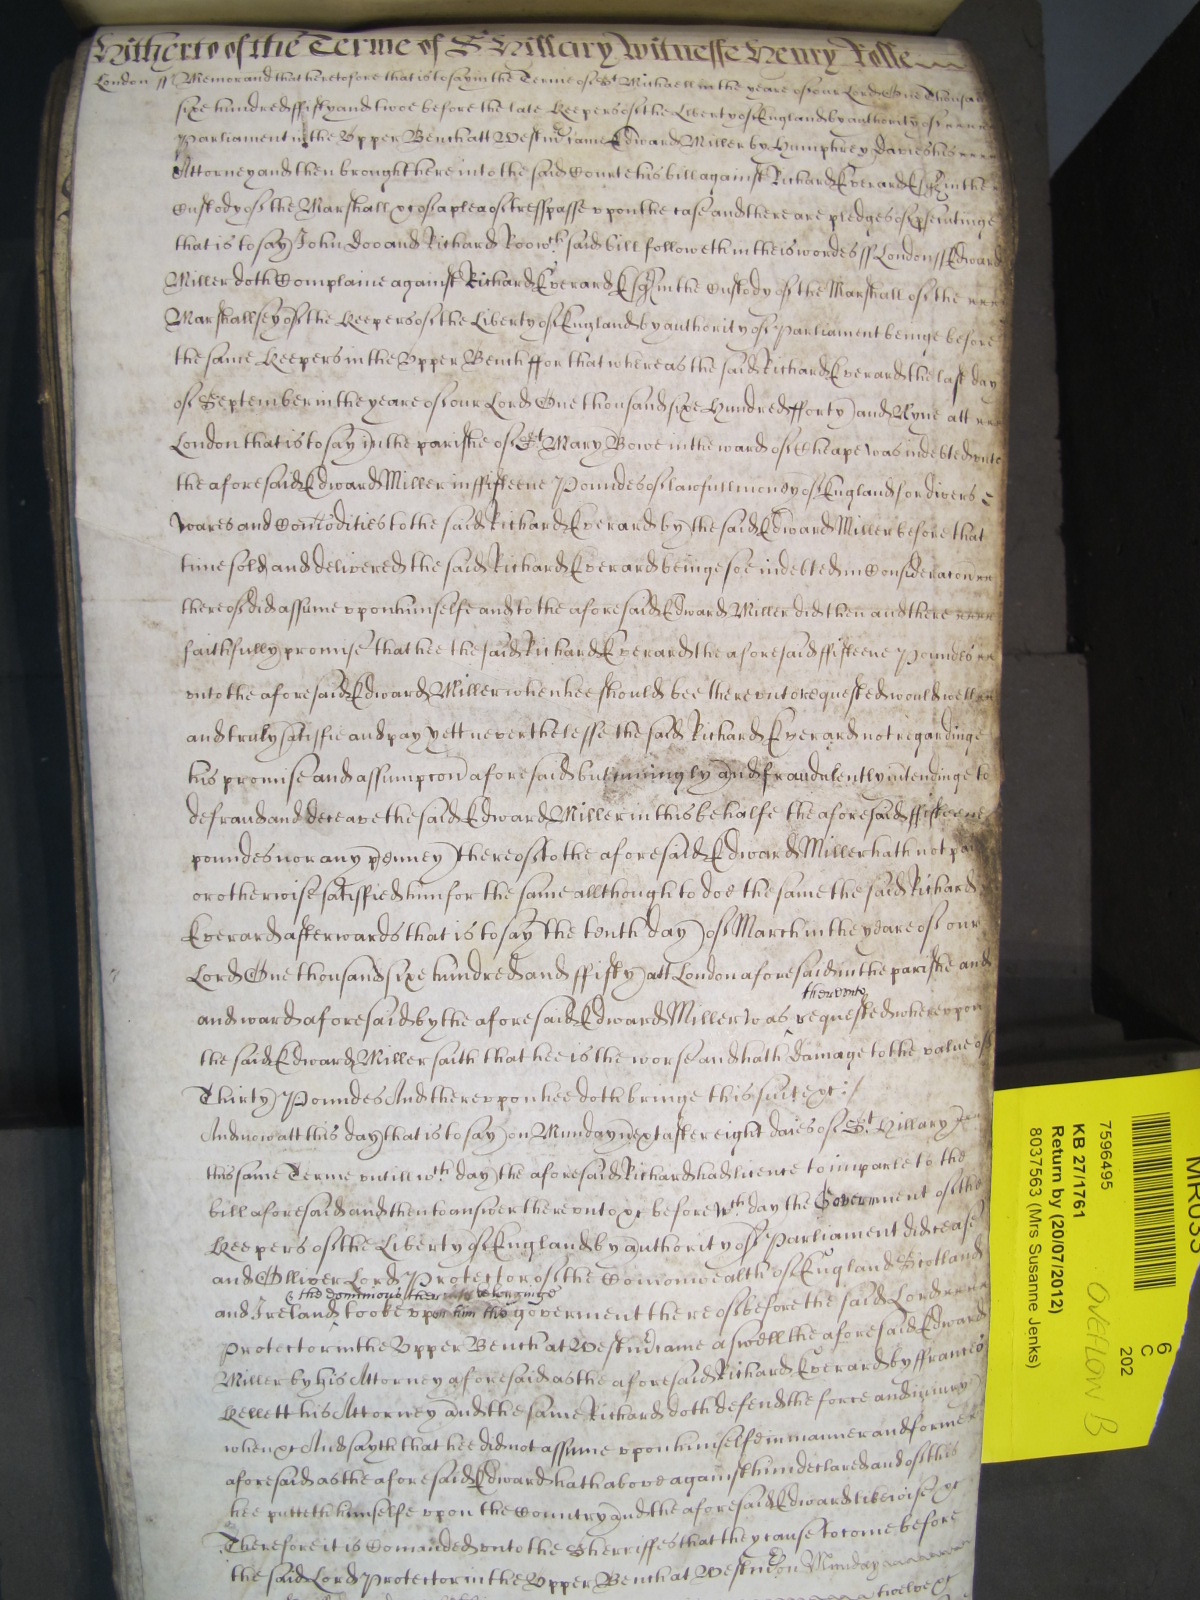 Hitherto of the Terme of St Hillary Witnesse Henry Rolle
London ss Memorand that heretofore that is to say in the Terme of St Michaell in the yeare of our Lord One thousand
sixe hundred fifty and twoe before the late Keepers of the Liberty of England by authority of
Parliament in the Upper Bench att Westm came Edward Miller by Humphrey Davies his
Attorney and then brought here into the said Courte his bill against Richard Everard Esqr in the
Custody of the Marshall &c of a plea of tresspasse upon the case and there are pledges of psecutinge
that is to say John Doo and Richard Roo wch said bill followeth in theis wordes ss London ss Edward
Miller doth Complaine against Richard Everard Esqr in the Custody of the Marshall of the
Marshallsey of the Keepers of the Liberty of England by authority of Parliament beinge before
the same Keepers in the Upper Bench ffor that whereas the said Richard Everard the last day
of September in the yeare of our Lord One thousand sixe Hundred fforty and Nyne att
London that is to say in the parishe of St Mary Bowe in the ward of Cheape was indebted unto
the aforesaid Edward Miller in ffifteene Poundes of lawfull money of England for divers
Wares and Comodities to the said Richard Everard by the said Edward Miller before that
time sold and delivered the said Richard Everard beinge soe indebted in Consideracon
thereof did assume upon himselfe and to the aforesaid Edward Miller did then and there
faithfully promise that hee the said Richard Everard the aforesaid ffifteene Poundes
unto the aforesaid Edward Miller when hee should bee thereunto requested would well
and truly satisfie and pay Yett neverthelesse the said Richard Everard not regardinge
his promise and assumpcon aforesaid but cuningly and fraudulently intendinge to
defraud and deceave the said Edward Miller in this behalfe the aforesaid ffifteene
poundes nor any penney thereof to the aforesaid Edward Miller hath not paid
or otherwise satisfied him for the same allthough to doe the same the said Richard
Everard afterwards that is to say the tenth day of March in the yeare of our
Lord One thousand sixe hundred and ffifty att London aforesaid in the parishe and
thereunto
and ward aforesaid by the aforesaid Edward Miller was requested whereupon
the said Edward Miller saith that hee is the worse and hath damage to the value of
Thirty Poundes And thereupon hee doth bringe this suit &c
And now att this day that is to say on Munday next after eight daies of St Hillary
this same Terme untill wch day the aforesaid Richard had licence to imparle to the
bill aforesaid and then to answer thereunto &c before wch day the Goverment of the
Keepers of the Liberty of England by authority of Parliament did cease
and Olliver Lord Protector of the Comonwealth of England Scotland
& the dominions thereunto belonginge
and Ireland tooke upon him the goverment thereof before the said Lord
Protector in the Upper Bench at Westm came aswell the aforesaid Edward
Miller by his Attorney aforesaid as the aforesaid Richard Everard by ffrancis
Kellett his Attorney and the same Richard doth defend the force and iniury
when &c And sayth that hee did not assume upon himselfe in manner and forme
aforesaid as the aforesaid Edward hath above against him declared and of this
hee putteth himselfe upon the Country and the aforesaid Edward likewise &c
Therefore it is Comanded unto the Sherriffes that they cause to come before
the said Lord Protector in the Upper Bench at Westm on Munday
twelve &c
MR033
6
C
202
7596495
KB 27/1761
Return by (20/07/2012)
8037563 (Mrs Susanne Jenks)
OVERFLOW B